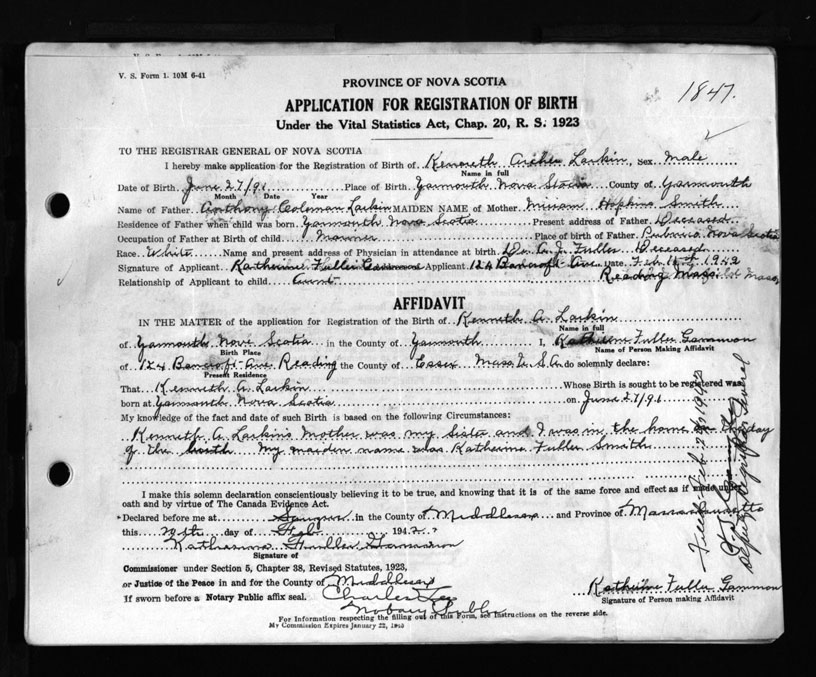 V. S. Form 1. 10M 6-41
1847.
PROVINCE OF NOVA SCOTIA
APPLICATION FOR REGISTRATION OF BIRTH
Under the Vital Statistics Act, Chap. 20, R. S. 1923
TO THE REGISTRAR GENERAL OF NOVA SCOTIA
I hereby make application for the Registration of Birth of Kenneth Archer Larkin, sex Male
Name in full
Date of Birth June 27/91 Place of Birth Yarmouth Nova Scotia County of Yarmouth
Month Date Year
Name of Father Anthony Coloman Larkin MAIDEN NAME of Mother Miriam Hopkins Smith
Residence of Father when child was born Yarmouth Nova Scotia Present address of Father Deceased
Occupation of Father at Birth of child Place of birth of Father Pubnico Nova Scotia
Race White Name and present address of Physician in attendance at birth Dr. A. J. Fuller Deceased
Signature of Applicant Katherine Fuller Gammon Applicant 124 Bancroft Ave Date Feb 1942
Reading Mass
Relationship of Applicant to child Aunt
AFFIDAVIT
IN THE MATTER of the application for Registration of the Birth of Kenneth A. Larkin
Name in full
of Yarmouth Nova Scotia in the County of Yarmouth I, Katherine Fuller Gammon
Birth Place Name of Person Making Affidavit
of 124 Bancroft Ave Reading the County of Essex Mass U.S.A do solemnly declare:
Present Residence
That Kenneth A. Larkin Whose Birth is sought to be registered was
born at Yarmouth Nova Scotia on June 27/91
My knowledge of the fact and date of such Birth is based on the following Circumstances:
Kenneth A. Larkin's Mother was my Sister and I was in the home on the day
of the birth My maiden name was Katherine Fuller Smith
I make this solemn declaration conscientiously believing it to be true, and knowing that it is of the same force and effect as if made under
oath and by virtue of The Canada Evidence Act.
*Declared before me at in the County of Middlesex and Province of Massachusetts
this day of Feb. 1942
Katherine Fuller Gammon
Signature of
Commissioner under Section 5, Chapter 38, Revised Statutes, 1923,
or Justice of the Peace in and for the County of Middlesex
If sworn before a Notary Public affix seal. Charles
Notary Public
Katherine Fuller Gammon
Signature of Person making Affidavit
For Information respecting the filling out of this Form, see Instructions on the reverse side.
My Commission Expires January 22, 1943
Filed Feb. 1942
Deputy Registrar General